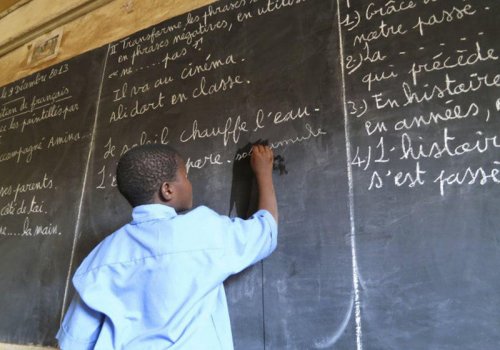 le 9 Décembre 2013
de français
les pointillés par
accompagné Amina...
ses parents.
côté de toi.
ne ..... la main.
II Transforme les phrases
en phrases négatives, en utilisant
" ne ..... pas ?"
Il va au cinéma.
Ali dort en classe.
Le soleil chauffe l'eau.
1) Grâce à
notre passé.
2) La ... ... ...
qui précède
3) En histoire
en années,
4) L'histoire
s'est passé